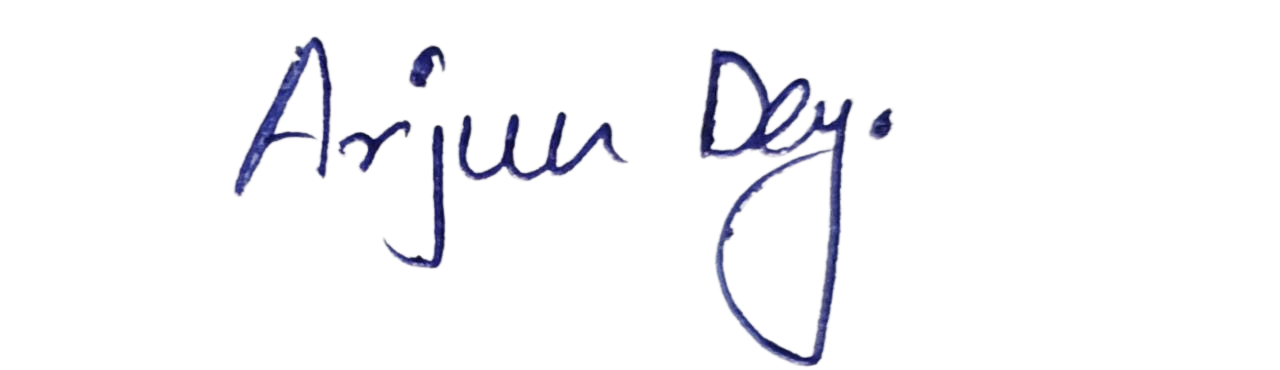 Arjun Dey.